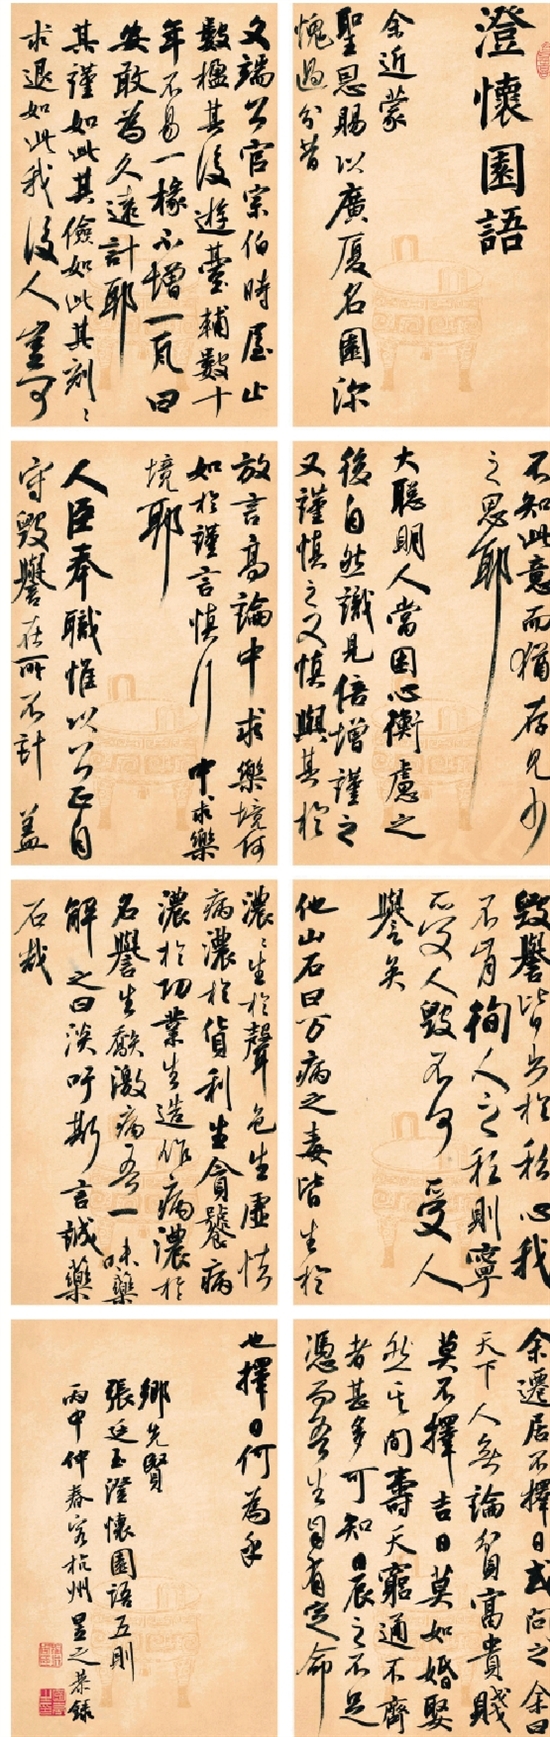 澄懷園語
余近蒙
聖恩賜以廣厦名園深
愧過分昔
文端公官宗伯時屋止
數楹其後遊臺輔數十
年不易一椽不增一瓦曰
安敢為久遠計耶
其謹如此其儉如此其刻刻
求退如此我後人豈可
不知此意而猶存見少
之思耶
大聰明人當困心衡慮之
後自然識見倍增謹之
又謹慎之又慎與其於
放言高論中求樂境何
如於謹言慎行中求樂
境耶
人臣奉職惟以公正自
守毀譽在所不計蓋
毀譽皆出於私心我
不肯徇人之私則寧
受人毀不可受人
譽矣
他山石曰萬病之毒皆生於
濃濃生於聲色生虛怯
病濃於貨利生貪饕病
濃於功業生造作病濃於
名譽生矯激病吾一味藥
解之曰淡吁斯言誠藥
石哉
余遷居不擇日或問之余曰
天下人無論貧富貴賤
莫不擇吉日莫如婚娶
然其間壽夭窮通不齊
者甚多可知日辰之不足
憑而吾生自有定命
也擇日何為乎
鄉先賢
張廷玉澄懷園語五則
丙申仲春客杭州昱之恭錄